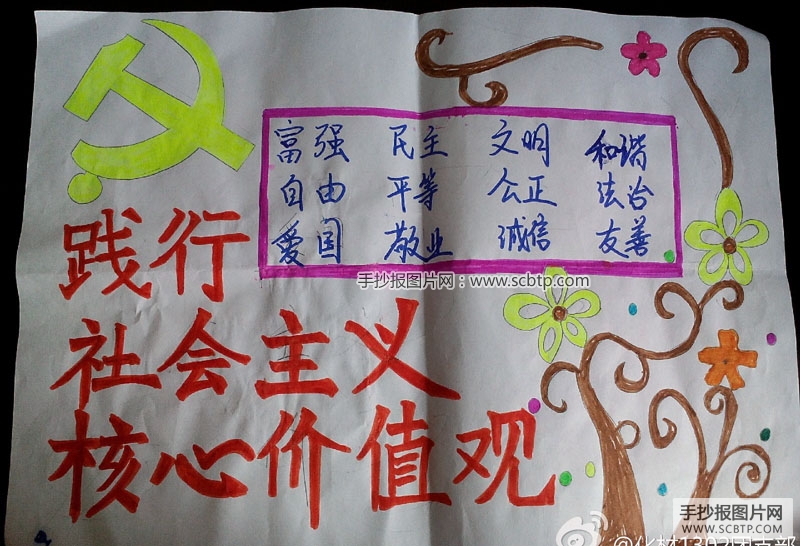 富强 民主 文明 和谐
自由 平等 公正 法治
爱国 敬业 诚信 友善
手抄报图片网：www.scbtp.com
践行
社会主义
核心价值观
手抄报图片网
WWW.SCBTP.COM
@化材1303团支部